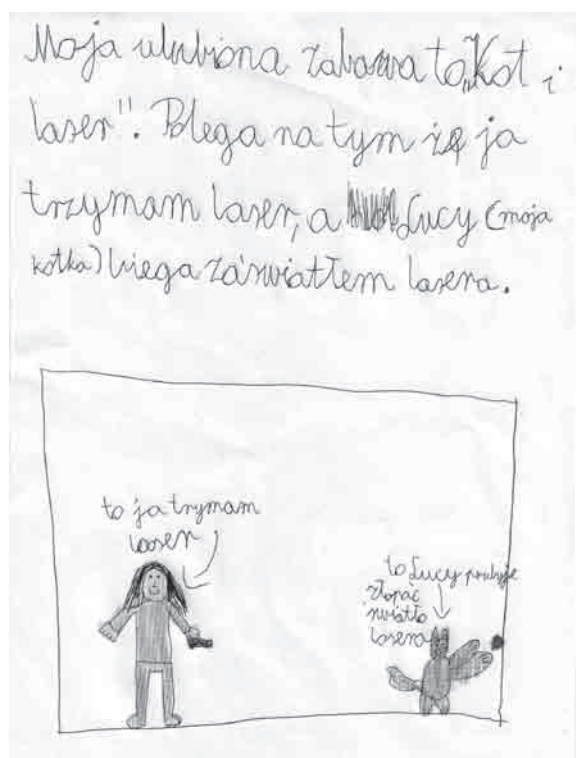 Moja ulubiona zabawa to„Kot i
laser". Polega na tym że ja
trzymam laser, a Lucy (moja
kotka) biega za światłem lasera.
to ja trymam
laser
to Lucy próbuje
złapać
światło
lasera